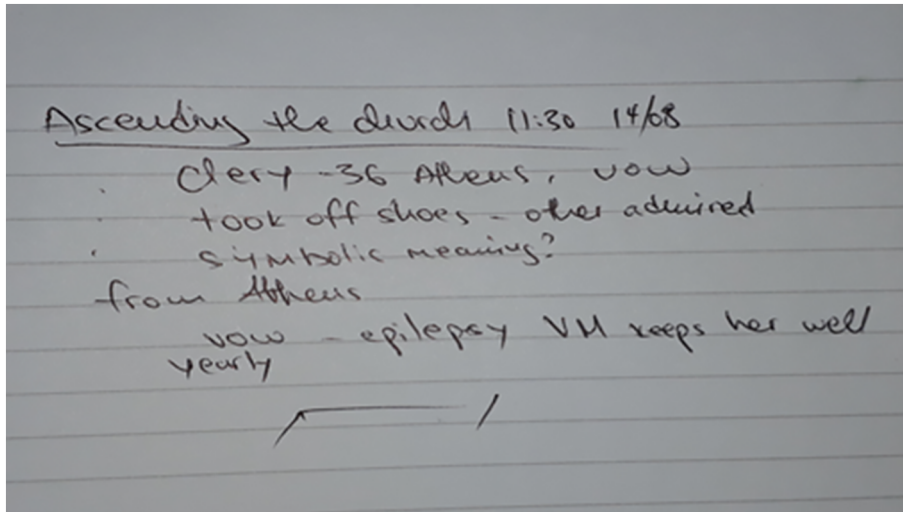 Ascending the church 11:30 14/08
Clery - 36 Athens, vow
took off shoes - other admired
symbolic meaning?
from Athens
vow - epilepsy VM keeps her well
yearly